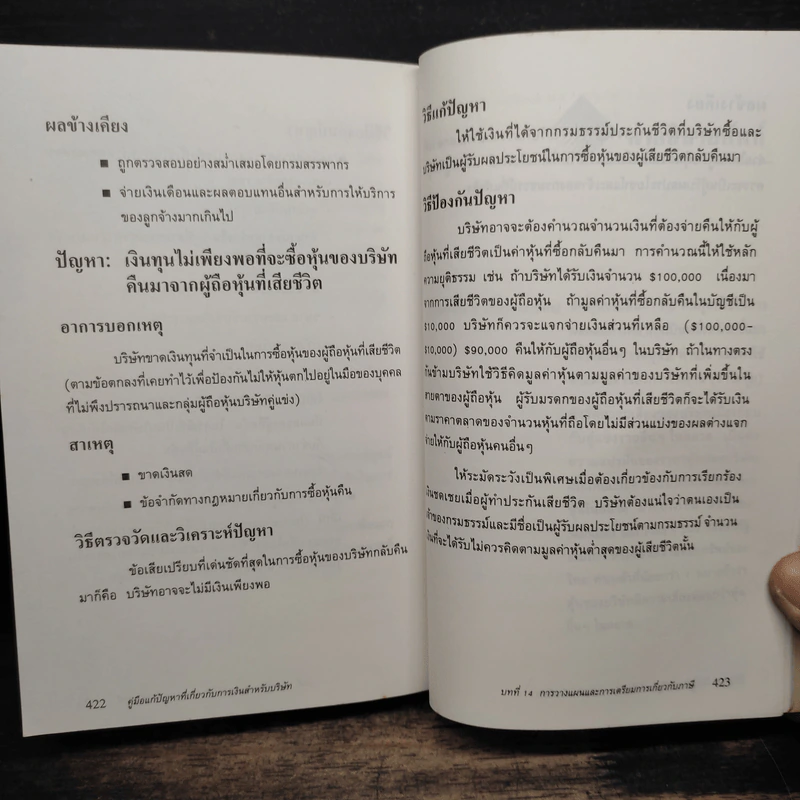 ผลข้างเคียง
■ ถูกตรวจสอบอย่างสม่ำเสมอโดยกรมสรรพากร
■ จ่ายเงินเดือนและผลตอบแทนอื่นสำหรับการให้บริการ
ของลูกจ้างมากเกินไป
ปัญหา: เงินทุนไม่เพียงพอที่จะซื้อหุ้นของบริษัท
คืนมาจากผู้ถือหุ้นที่เสียชีวิต
อาการบอกเหตุ
บริษัทขาดเงินทุนที่จำเป็นในการซื้อหุ้นของผู้ถือหุ้นที่เสียชีวิต
(ตามข้อตกลงที่เคยทำไว้เพื่อป้องกันไม่ให้หุ้นตกไปอยู่ในมือของบุคคล
ที่ไม่พึงปรารถนาและกลุ่มผู้ถือหุ้นบริษัทคู่แข่ง)
สาเหตุ
■ ขาดเงินสด
■ ข้อจำกัดทางกฎหมายเกี่ยวกับการซื้อหุ้นคืน
วิธีตรวจวัดและวิเคราะห์ปัญหา
ข้อเสียเปรียบที่เด่นชัดที่สุดในการซื้อหุ้นของบริษัทกลับคืน
มาก็คือ บริษัทอาจจะไม่มีเงินเพียงพอ
422 คู่มือแก้ปัญหาที่เกี่ยวกับการเงินสำหรับบริษัท
วิธีแก้ปัญหา
ให้ใช้เงินที่ได้จากกรมธรรม์ประกันชีวิตที่บริษัทซื้อและ
บริษัทเป็นผู้รับผลประโยชน์ในการซื้อหุ้นของผู้เสียชีวิตกลับคืนมา
วิธีป้องกันปัญหา
บริษัทอาจจะต้องคำนวณจำนวนเงินที่ต้องจ่ายคืนให้กับผู้
ถือหุ้นที่เสียชีวิตเป็นค่าหุ้นที่ซื้อกลับคืนมา การคำนวณนี้ให้ใช้หลัก
ความยุติธรรม เช่น ถ้าบริษัทได้รับเงินจำนวน $100,000 เนื่องมา
จากการเสียชีวิตของผู้ถือหุ้น ถ้ามูลค่าหุ้นที่ซื้อกลับคืนในบัญชีเป็น
$10,000 บริษัทก็ควรจะแจกจ่ายเงินส่วนที่เหลือ ($100,000-
$10,000) $90,000 คืนให้กับผู้ถือหุ้นอื่นๆ ในบริษัท ถ้าในทางตรง
กันข้ามบริษัทใช้วิธีคิดมูลค่าหุ้นตามมูลค่าของบริษัทที่เพิ่มขึ้นใน
สายตาของผู้ถือหุ้น ผู้รับมรดกของผู้ถือหุ้นที่เสียชีวิตก็จะได้รับเงิน
ตามราคาตลาดของจำนวนหุ้นที่ถือโดยไม่มีส่วนแบ่งของผลต่างแจก
จ่ายให้กับผู้ถือหุ้นคนอื่นๆ
ให้ระมัดระวังเป็นพิเศษเมื่อต้องเกี่ยวข้องกับการเรียกร้อง
เงินชดเชยเมื่อผู้ทำประกันเสียชีวิต บริษัทต้องแน่ใจว่าตนเองเป็น
เจ้าของกรมธรรม์และมีชื่อเป็นผู้รับผลประโยชน์ตามกรมธรรม์ จำนวน
เงินที่จะได้รับไม่ควรคิดตามมูลค่าหุ้นต่ำสุดของผู้เสียชีวิตนั้น
บทที่ 14 การวางแผนและการเตรียมการเกี่ยวกับภาษี 423